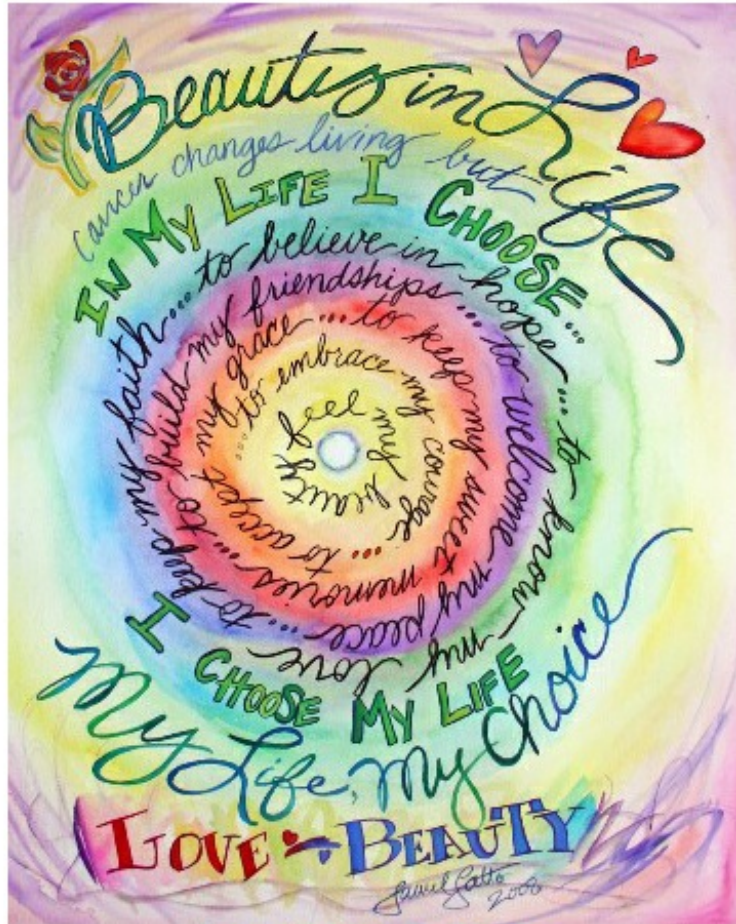 Beauty in Life
cancer changes living but
IN MY LIFE I CHOOSE...
to believe in hope... to know my love... to keep my faith...
to build my friendships... to welcome my peace...
to keep my sweet memories... to accept my grace...
...to embrace my courage...
feel my beauty
I CHOOSE MY LIFE
My Life, My Choice
LOVE BEAUTY
2008